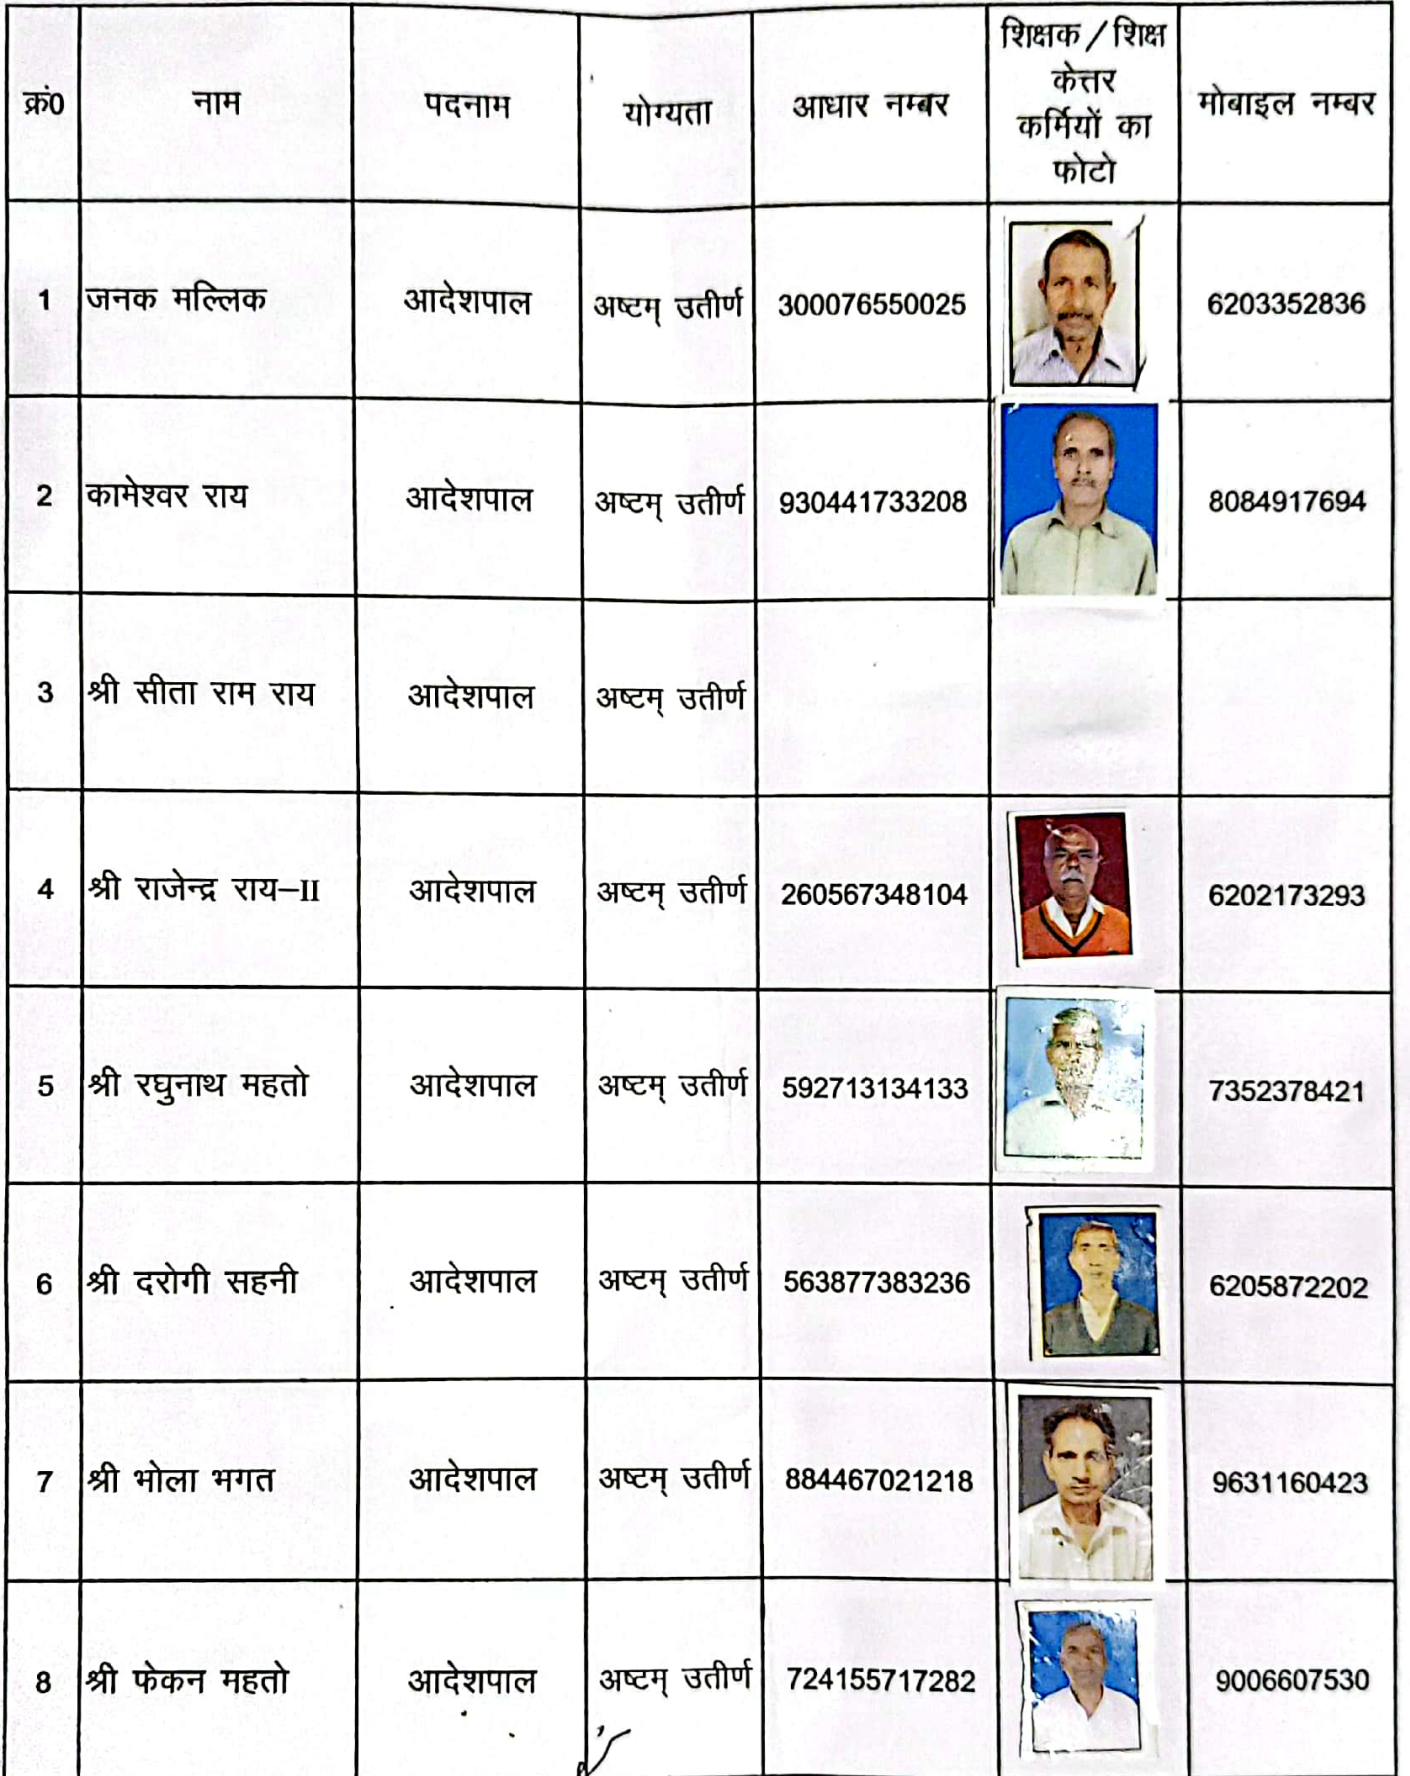 क्रं0 नाम पदनाम योग्यता आधार नम्बर शिक्षक / शिक्ष
केत्तर
कर्मियों का
फोटो मोबाइल नम्बर
1 जनक मल्लिक आदेशपाल अष्टम् उतीर्ण 300076550025 6203352836
2 कामेश्वर राय आदेशपाल अष्टम् उतीर्ण 930441733208 8084917694
3 श्री सीता राम राय आदेशपाल अष्टम् उतीर्ण
4 श्री राजेन्द्र राय–II आदेशपाल अष्टम् उतीर्ण 260567348104 6202173293
5 श्री रघुनाथ महतो आदेशपाल अष्टम् उतीर्ण 592713134133 7352378421
6 श्री दरोगी सहनी आदेशपाल अष्टम् उतीर्ण 563877383236 6205872202
7 श्री भोला भगत आदेशपाल अष्टम् उतीर्ण 884467021218 9631160423
8 श्री फेकन महतो आदेशपाल अष्टम् उतीर्ण 724155717282 9006607530